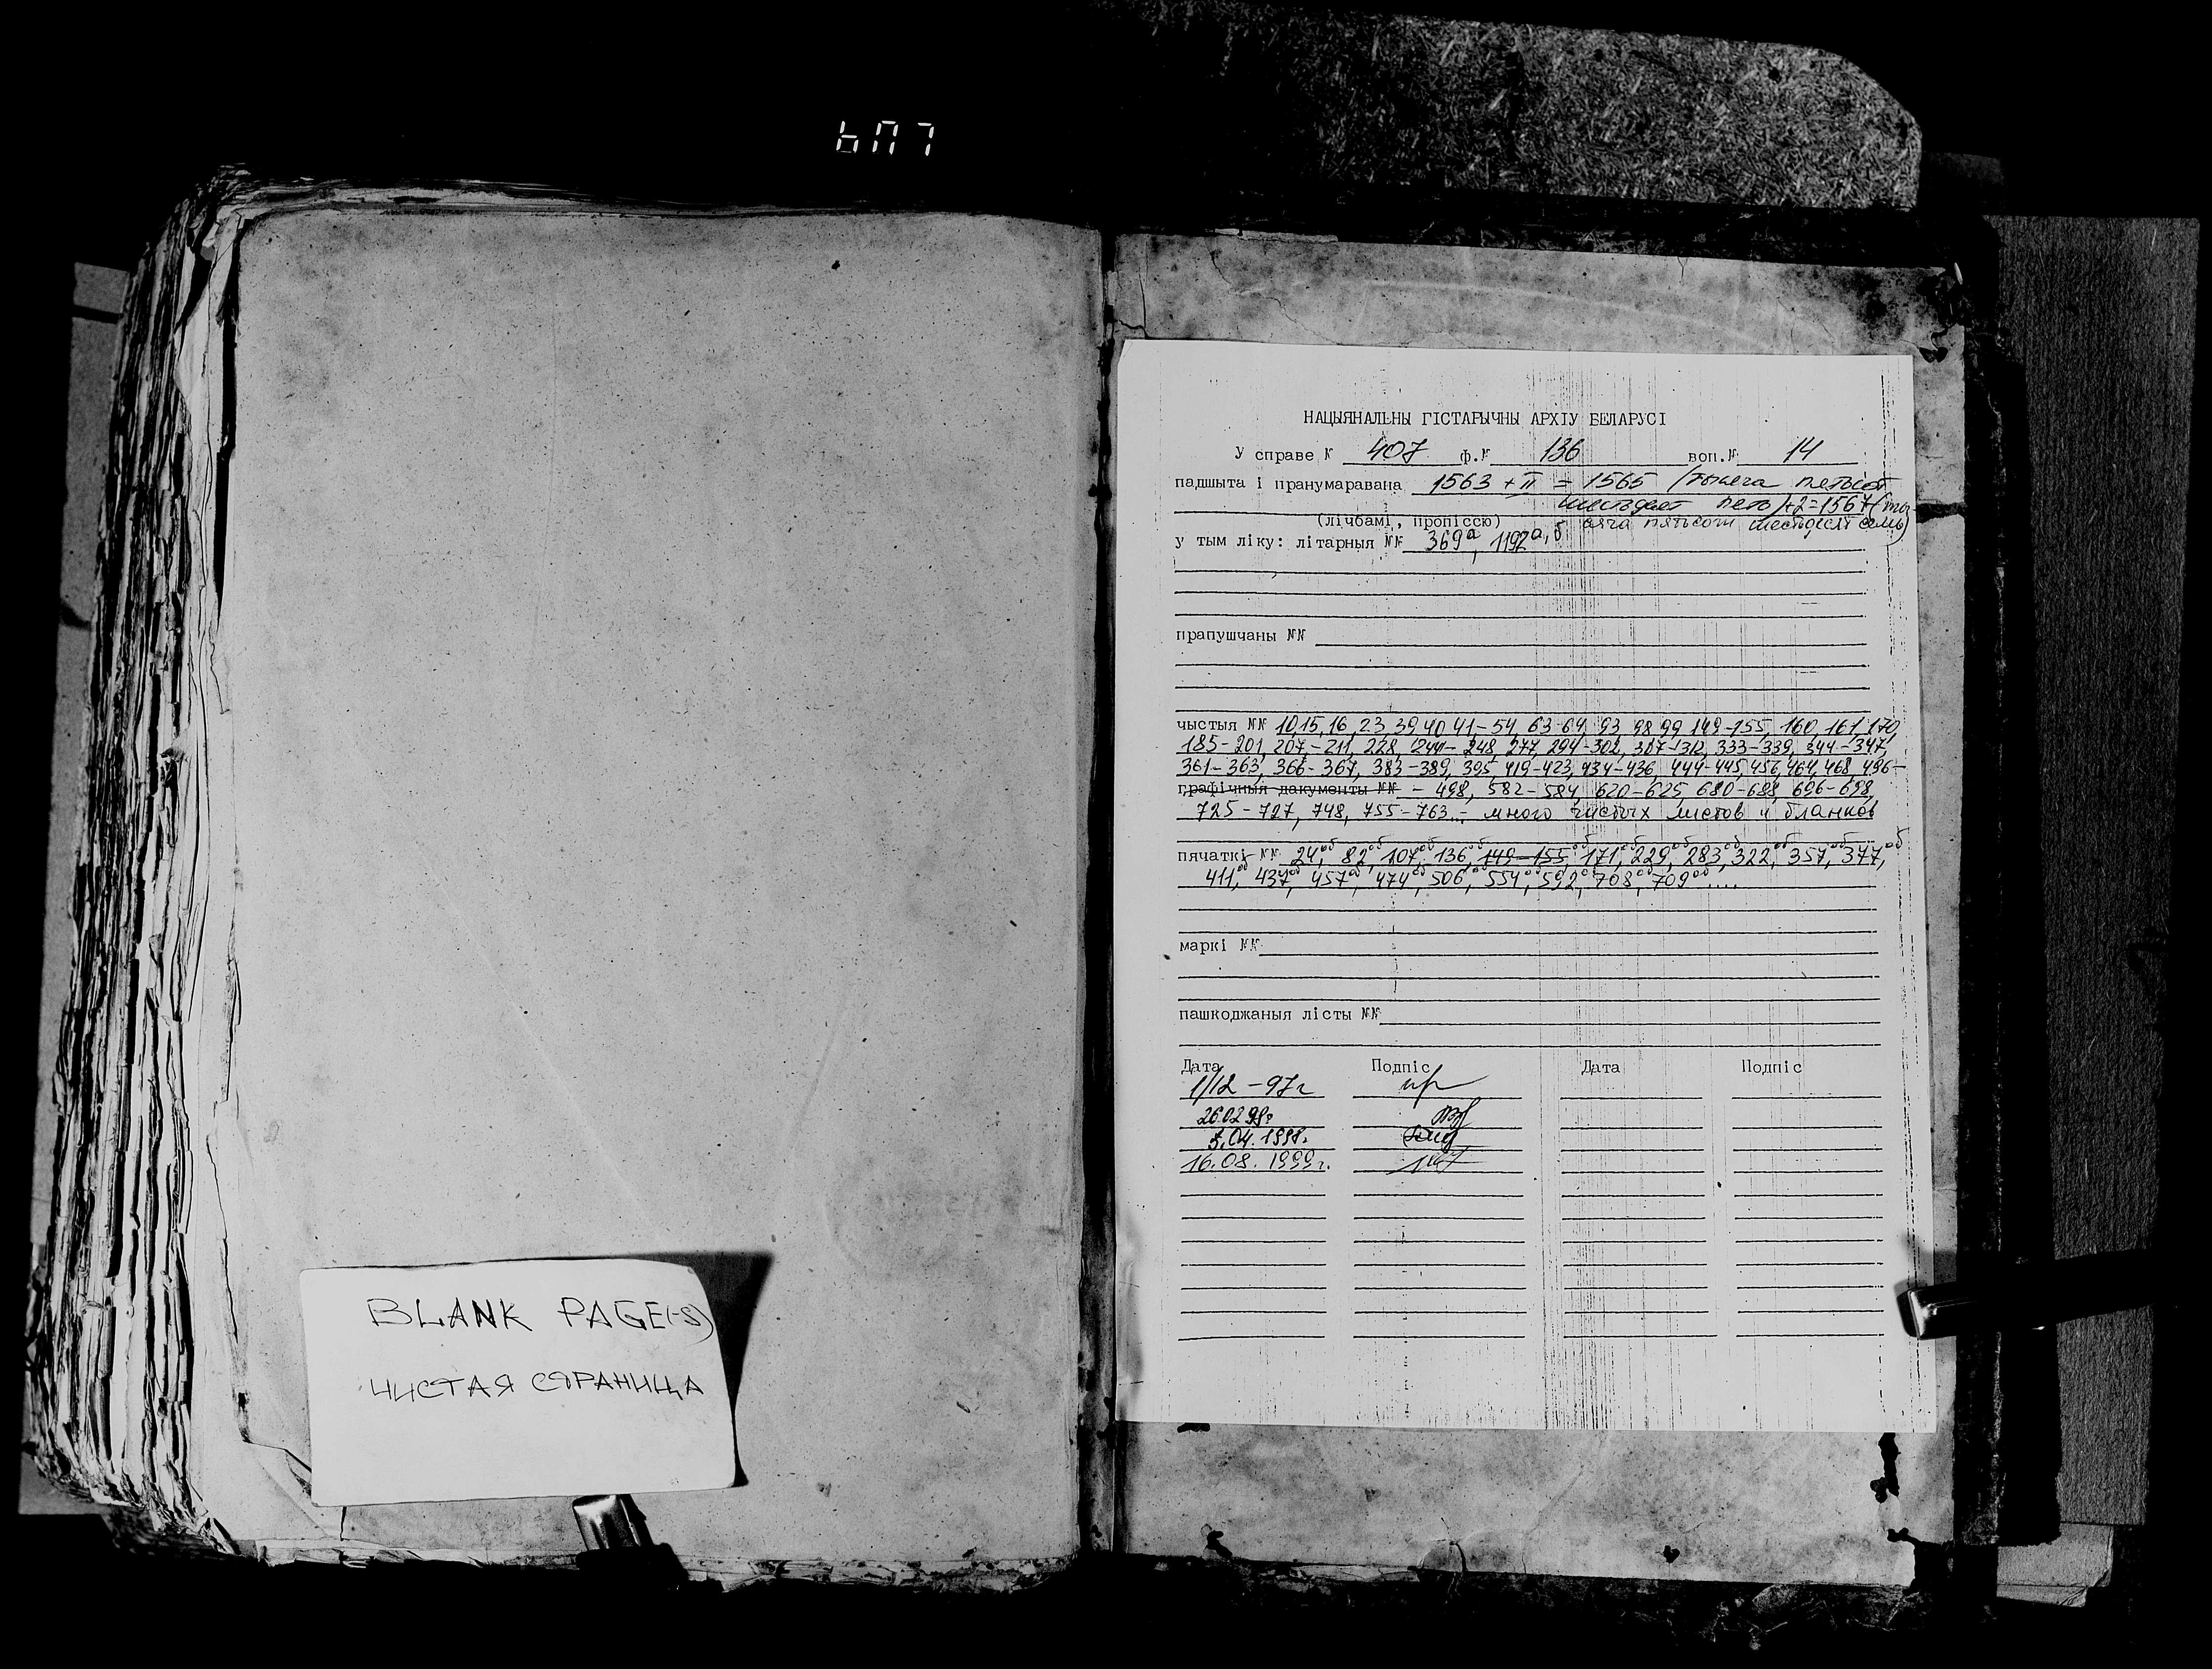 607
BLANK PAGE(-S)
ЧИСТАЯ СТРАНИЦА
НАЦЫЯНАЛЬНЫ ГІСТАРЫЧНЫ АРХІУ БЕЛАРУСІ
У справе № 407 ф.№ 136 воп.№ 14
падшыта і пранумаравана 1563 + II = 1565 /тысяча пятьсот
шестьдесят пять/+2=1567 (ты-
(лічбамі, пропіссю) сяча пятьсот шестьдесят семь)
у тым ліку: літарныя №№ 369а, 1192а,б
прапушчаны №№
чыстыя №№ 10,15,16, 23, 39, 40, 41-54, 63-64, 93, 98, 99, 149-155, 160, 161, 170,
185-201, 207-211, 228, 244-248, 277, 294-302, 307-312, 333-339, 344-347,
361-363, 366-367, 383-389, 395, 419-423, 434-436, 444-445, 456, 464, 468, 496-
графічныя дакументы №№ - 498, 582-584, 620-625, 680-688, 696-698,
725-727, 748, 755-763... много чистых листов и бланков
пячаткі №№ 24об, 82об, 107об, 136, 149-155об, 171об, 229об, 283об, 322об, 357об, 377об,
411об, 437об, 457об, 474об, 506об, 554об, 592об, 708об, 709об....
маркі №№
пашкоджаныя лісты №№
Дата Подпіс Дата Подпіс
1/12-97г
26.02.98г
3.04.1998г.
16.08.1999г.